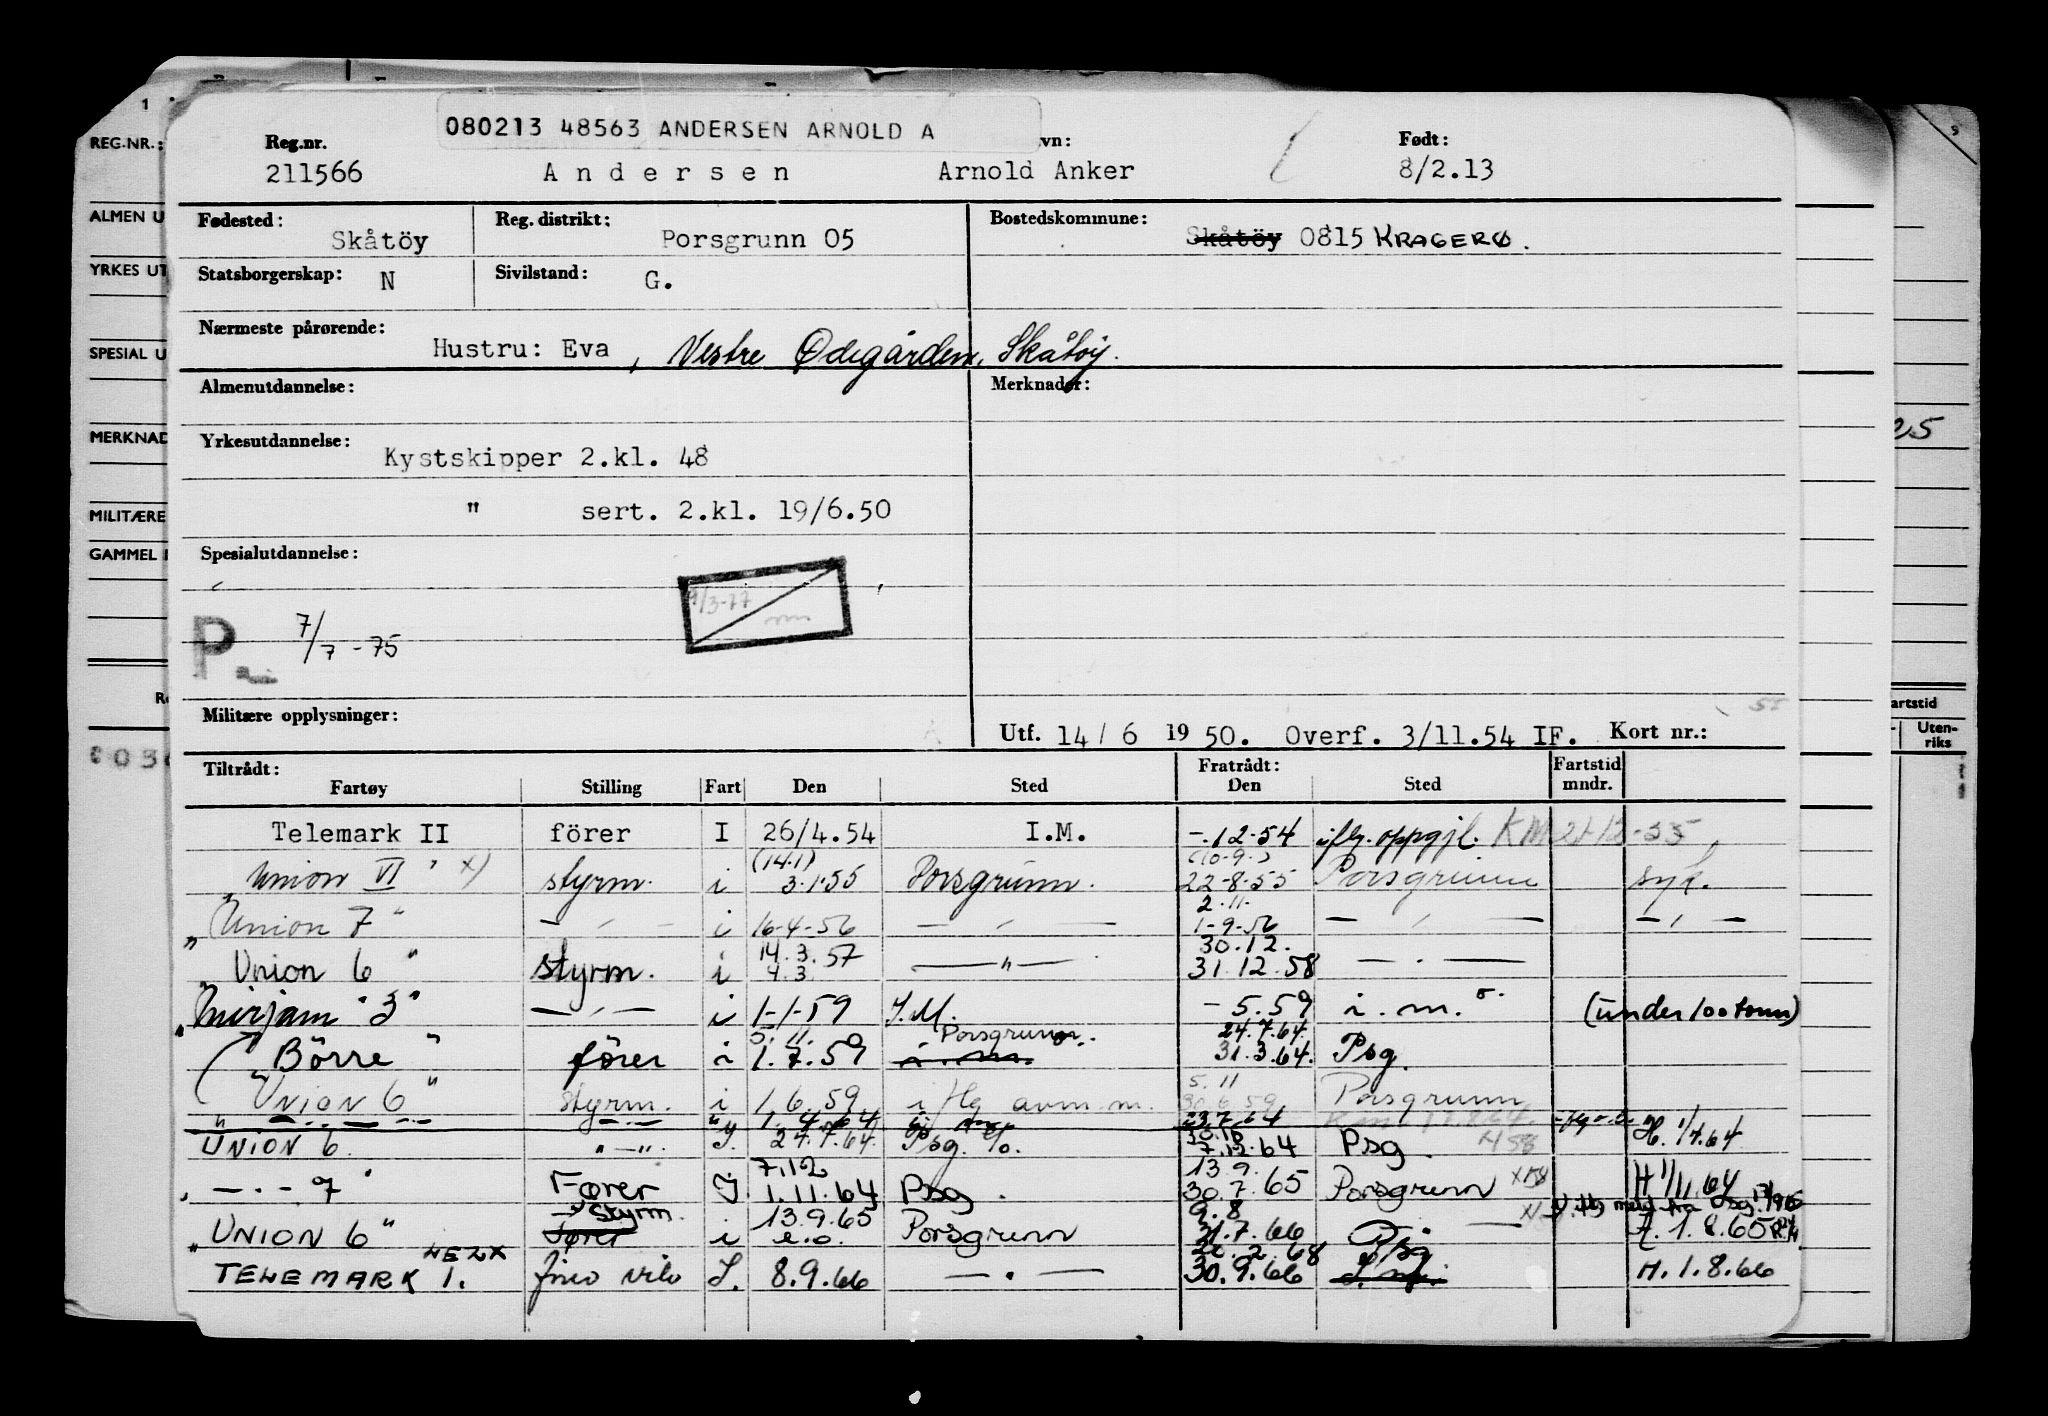 080213 48563 ANDERSEN ARNOLD A
1
9
REG.NR.:
Reg.nr.
vn:
Født:
211566 Andersen Arnold Anker 8/2.13
ALMEN U
Fødested:
Reg. distrikt:
Bostedskommune:
Skåtöy
Porsgrunn 05
Skåtöy 0815 KRAGERØ.
YRKES UT
Statsborgerskap: N
Sivilstand: G.
Nærmeste pårørende:
Hustru: Eva, Vestre Ødegården, Skåtöy.
SPESIAL U
Almenutdannelse:
Merknader:
MERKNAD
Yrkesutdannelse:
25
Kystskipper 2.kl. 48
MILITÆRE
" sert. 2.kl. 19/6.50
GAMMEL
Spesialutdannelse:
P
7/7-75
/3-77
Militære opplysninger:
Utf. 14/6 1950. Overf. 3/11.54 IF. Kort nr.:
artstid
Uten-
riks
Tiltrådt:
Fartøy Stilling Fart Den Sted
Fratrådt:
Den Sted
Fartstid
mndr.
Telemark II förer I 26/4.54 I.M. -.12-54 iflg. oppgjl.
(14.1) (10-9-)
"Union VI" x) styrm. i 3.1.55 Porsgrunn. 22-8-55 Porsgrunn syk.
2.11.
"Union 7" — " — i 16-4-56 — " — 1-9-56 — " — — " —
14.3. 30.12.
"Union 6" styrm. i 4.3. 57 — " — 31.12.58 — " —
"Mirjam 3" — " — i 1-1-59 I.M. - 5.59 i.m. (under 100 tonn)
5.11. Porsgrunn. 24.7.64.
"Börre" förer i 1.7.59 i.m. 31.3.64. Psg.
5.11
"Union 6" styrm. i 1.6.59 30.6.59 Porsgrunn
1.4.64 23.7.64 H. 1/4.64
UNION 6. " — " 24.7.64. Psg. 7.12.64 Psg.
7.12 13.9.
" — " — 7" Fører J. 1.11.64 Psg. 30.7.65 Porsgrunn H 1/11.64
styrm. 13.9.65 9.8
"UNION 6" fører i e.o. Porsgrunn 31.7.66 H. 1.8.65
20.2.68 Psg
TELEMARK 1. 8.9.66 — " — 30.9.66 H. 1.8.66